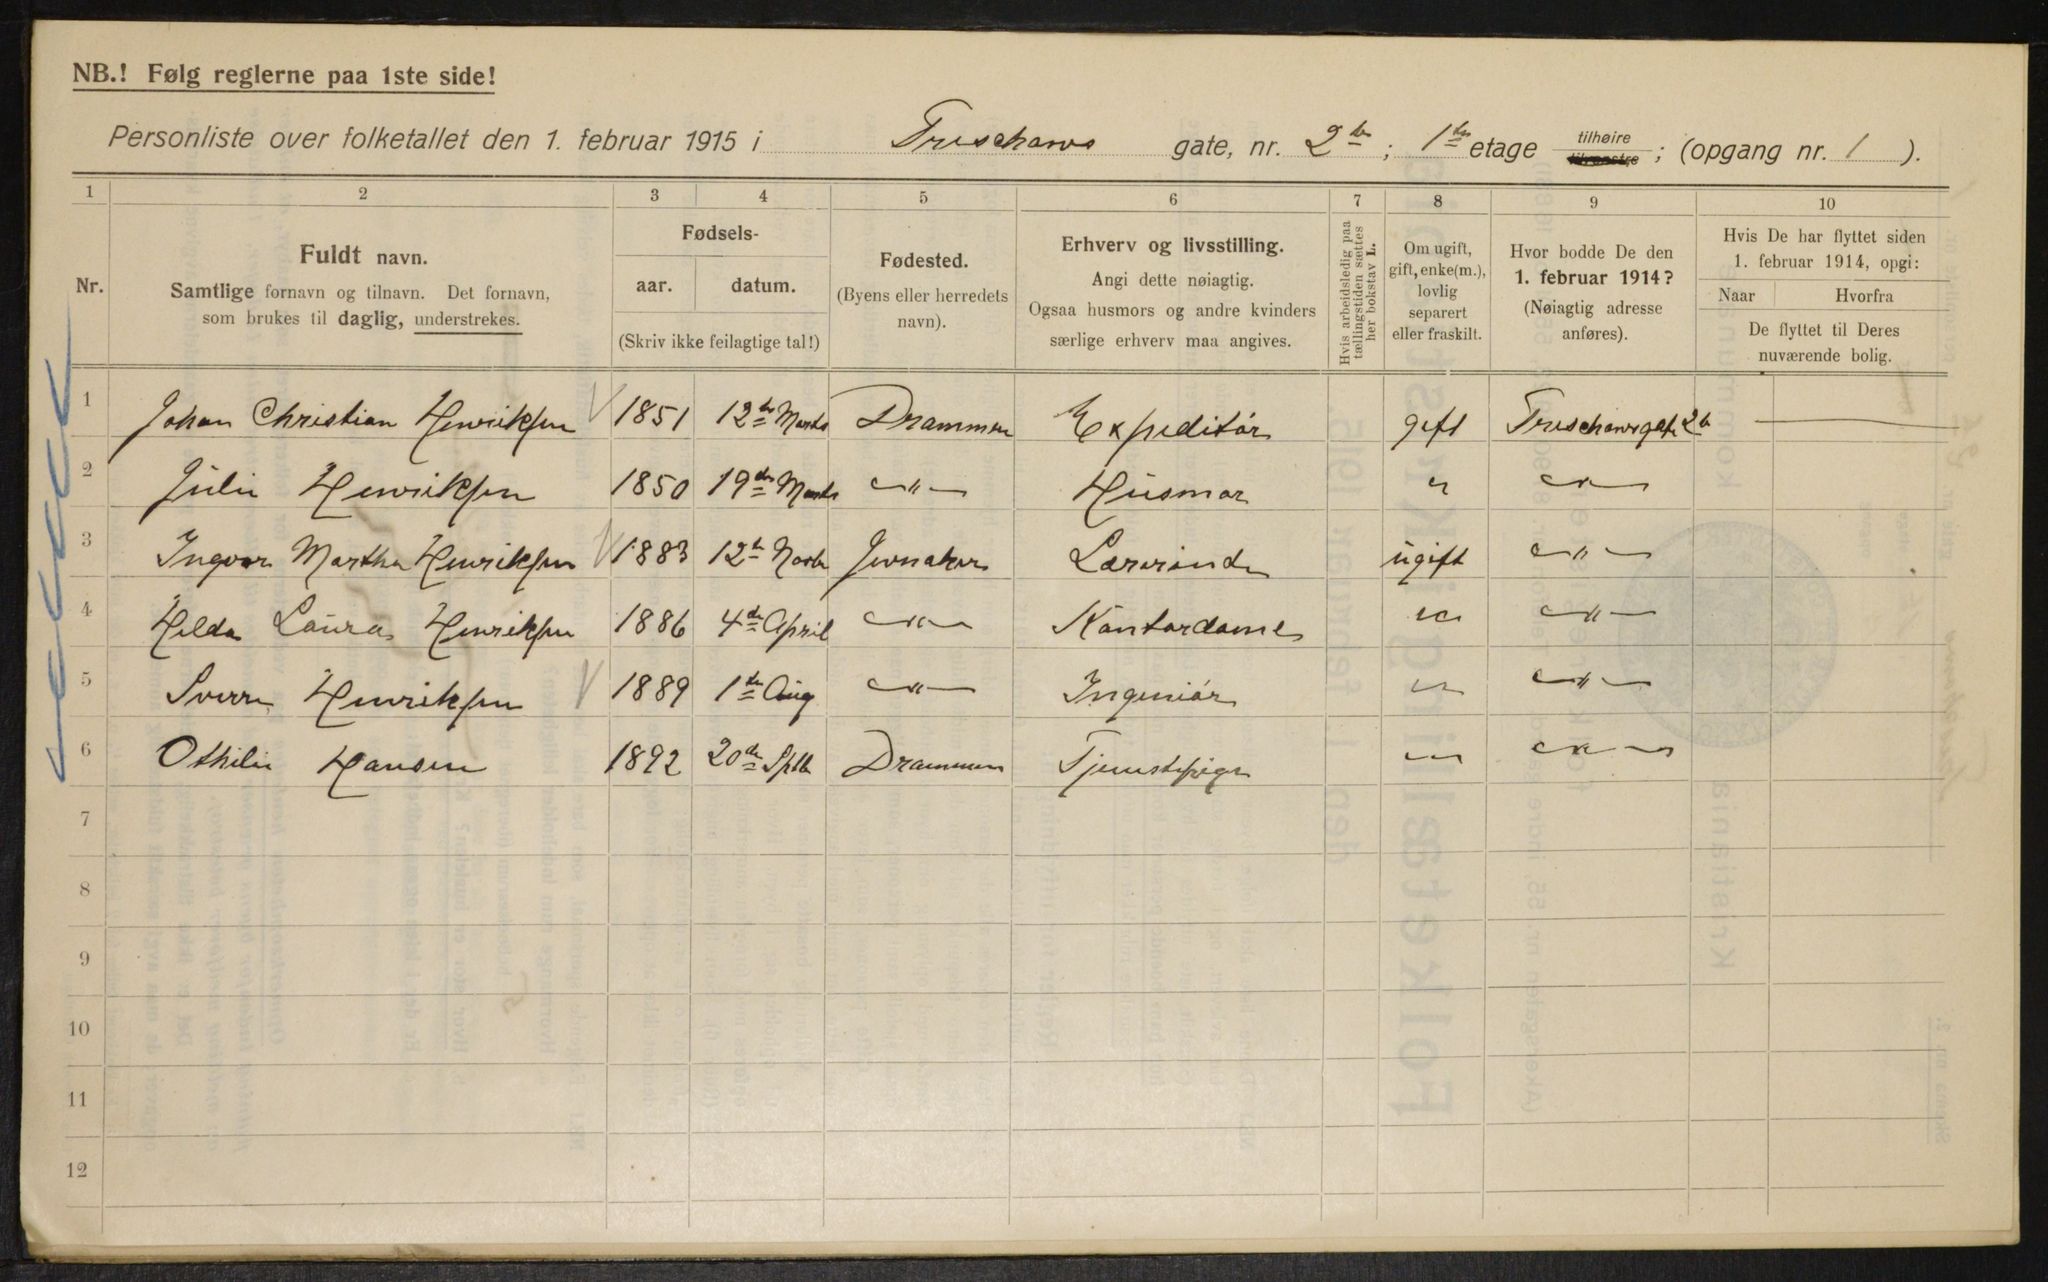 NB.! Følg reglerne paa 1ste side!
Personliste over folketallet den 1. februar 1915 i Treschows gate, nr. 2 b; 1ste etage tilhøire tilvenstre; (opgang nr. 1).
1 2 3 4 5 6 7 8 9 10
Nr.
Fuldt navn.
Samtlige fornavn og tilnavn. Det fornavn,
som brukes til daglig, understrekes.
Fødsels-
aar. datum.
(Skriv ikke feilagtige tal!)
Fødested.
(Byens eller herredets
navn).
Erhverv og livsstilling.
Angi dette nøiagtig.
Ogsaa husmors og andre kvinders
særlige erhverv maa angives.
Hvis arbeidsledig paa
tællingstiden sættes
her bokstav L.
Om ugift,
gift, enke(m.),
lovlig
separert
eller fraskilt.
Hvor bodde De den
1. februar 1914?
(Nøiagtig adresse
anføres).
Hvis De har flyttet siden
1. februar 1914, opgi:
Naar Hvorfra
De flyttet til Deres
nuværende bolig.
1 Johan Christian Henriksen 1851 12te Marts Drammen Expeditør gift Treschowsgate 2b
2 Julie Henriksen 1850 19de Marts " Husmor " "
3 Ingvar Martha Henriksen 1883 12te Novbr Jevnaker Lærerinde ugift "
4 Hilda Laura Henriksen 1886 4de April " Kontordame " "
5 Sverre Henriksen 1889 1ste Aug " Ingeniør " "
6 Othilie Hansen 1892 20de Sptb Drammen Tjenestepige " "
7
8
9
10
11
12